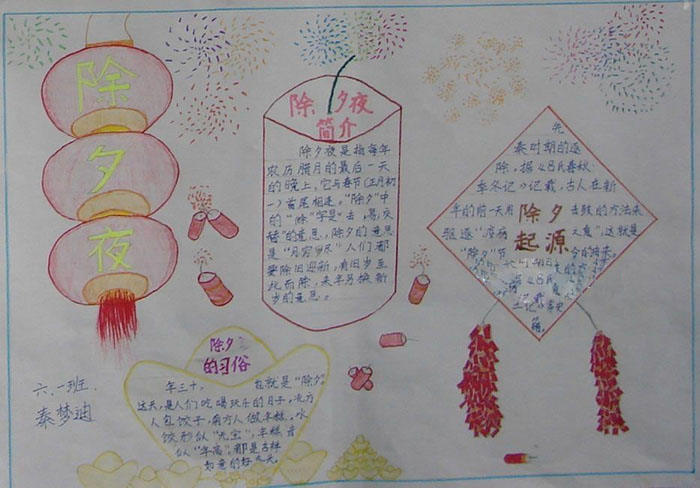 除
夕
夜
除夕夜
简介
除夕夜是指每年
农历腊月的最后一天
的晚上,它与春节(正月初
一)首尾相连。“除夕”中
的“除”字是“去,易,交
替”的意思,除夕的意思
是“月穷岁尽”人们都
要除旧迎新,有旧岁至
此而除,来年另换新
岁的意思。
先
秦时期的逐
除,据《吕氏春秋·
季冬记》记载,古人在新
年的前一天用
击鼓的方法来
驱逐“疫疠
之鬼”,这就是
“除夕”节
的由来。
除夕
起源
除夕
的习俗
年三十,
在就是“除夕”
这天,是人们吃喝玩乐的日子,北方
人包饺子,南方人做年糕。水
饺形似“元宝”,年糕音
似“年高”,都是吉祥
如意的好
六.一班.
秦梦迪